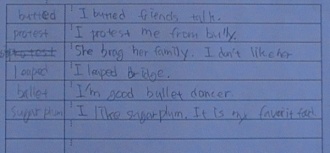 butted I butted friends talk.
protest I protest me from bully.
She brag her family. I don't like her
leaped I leaped Bridge.
ballet I'm good ballet dancer.
sugar plum I like sugar plum. It is my favorit food